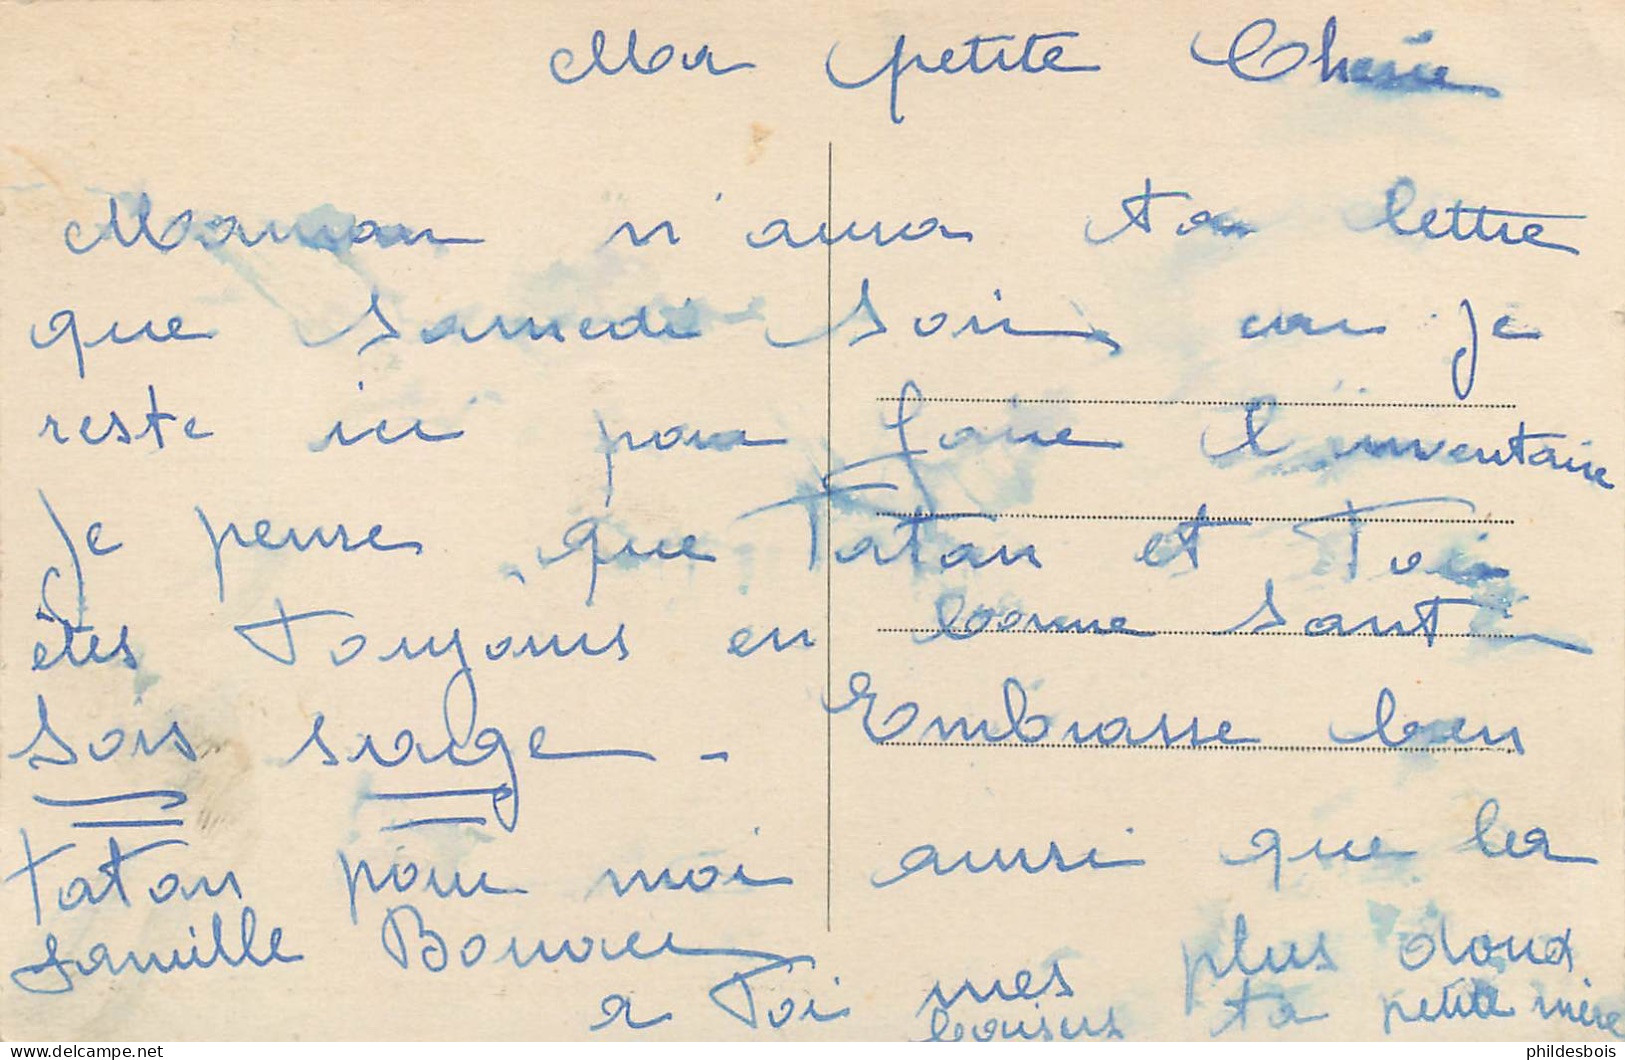 Ma petite Cherie
Maman n'aura ta lettre
que Samedi Soir, car je
reste ici pour faire l'inventaire
Je pense que Tatan et Toi
êtes Toujours en bonne Santé
Sois sage - Embrasse bien
Tatan pour moi ainsi que la
famille
a Toi mes plus doux
baisers ta petite mère
phildesbois